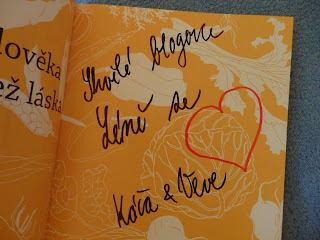 lověka
ež láska
Skvělé blogerce
Léně se
Kořa & Veve